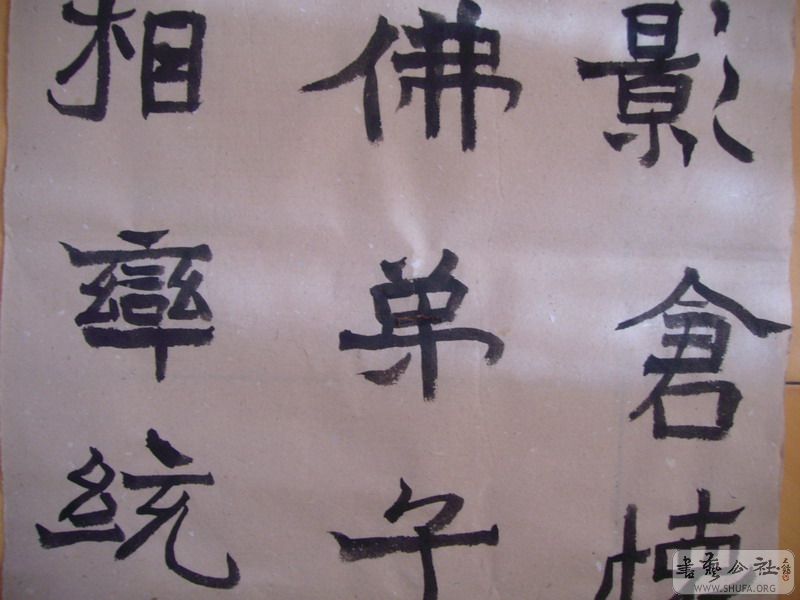 影倉
佛弟子
相統
書藝公社
WWW.SHUFA.ORG